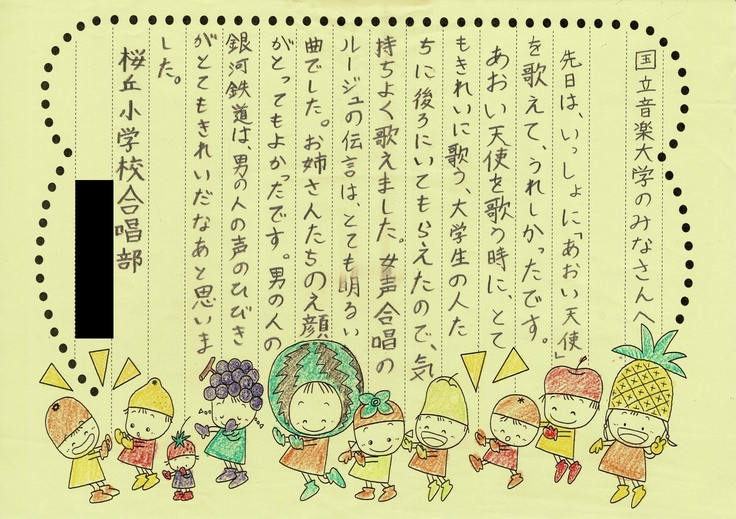 国立音楽大学のみなさんへ
先日は、いっしょに「あおい天使」
を歌えて、うれしかったです。
あおい天使を歌う時に、とて
もきれいに歌う、大学生の人た
ちに後ろにいてもらえたので、気
持ちよく歌えました。女声合唱の
ルージュの伝言は、とても明るい
曲でした。お姉さんたちのえ顔
がとってもよかったです。男の人の
銀河鉄道は、男の人の声のひびき
がとてもきれいだなあと思いま
した。
桜丘小学校合唱部